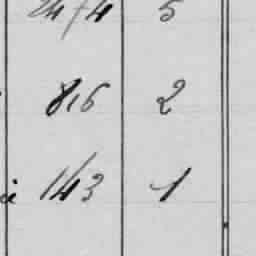 5
816 2
143 1